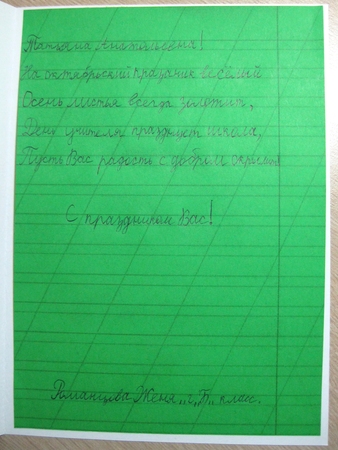 Татьяна Анатольевна!
На октябрьский праздник весёлый
Осень листья всегда золотит,
День учителя празднует школа,
Пусть Вас радость с добром
С праздником Вас!
Романцова Женя „Б" класс.